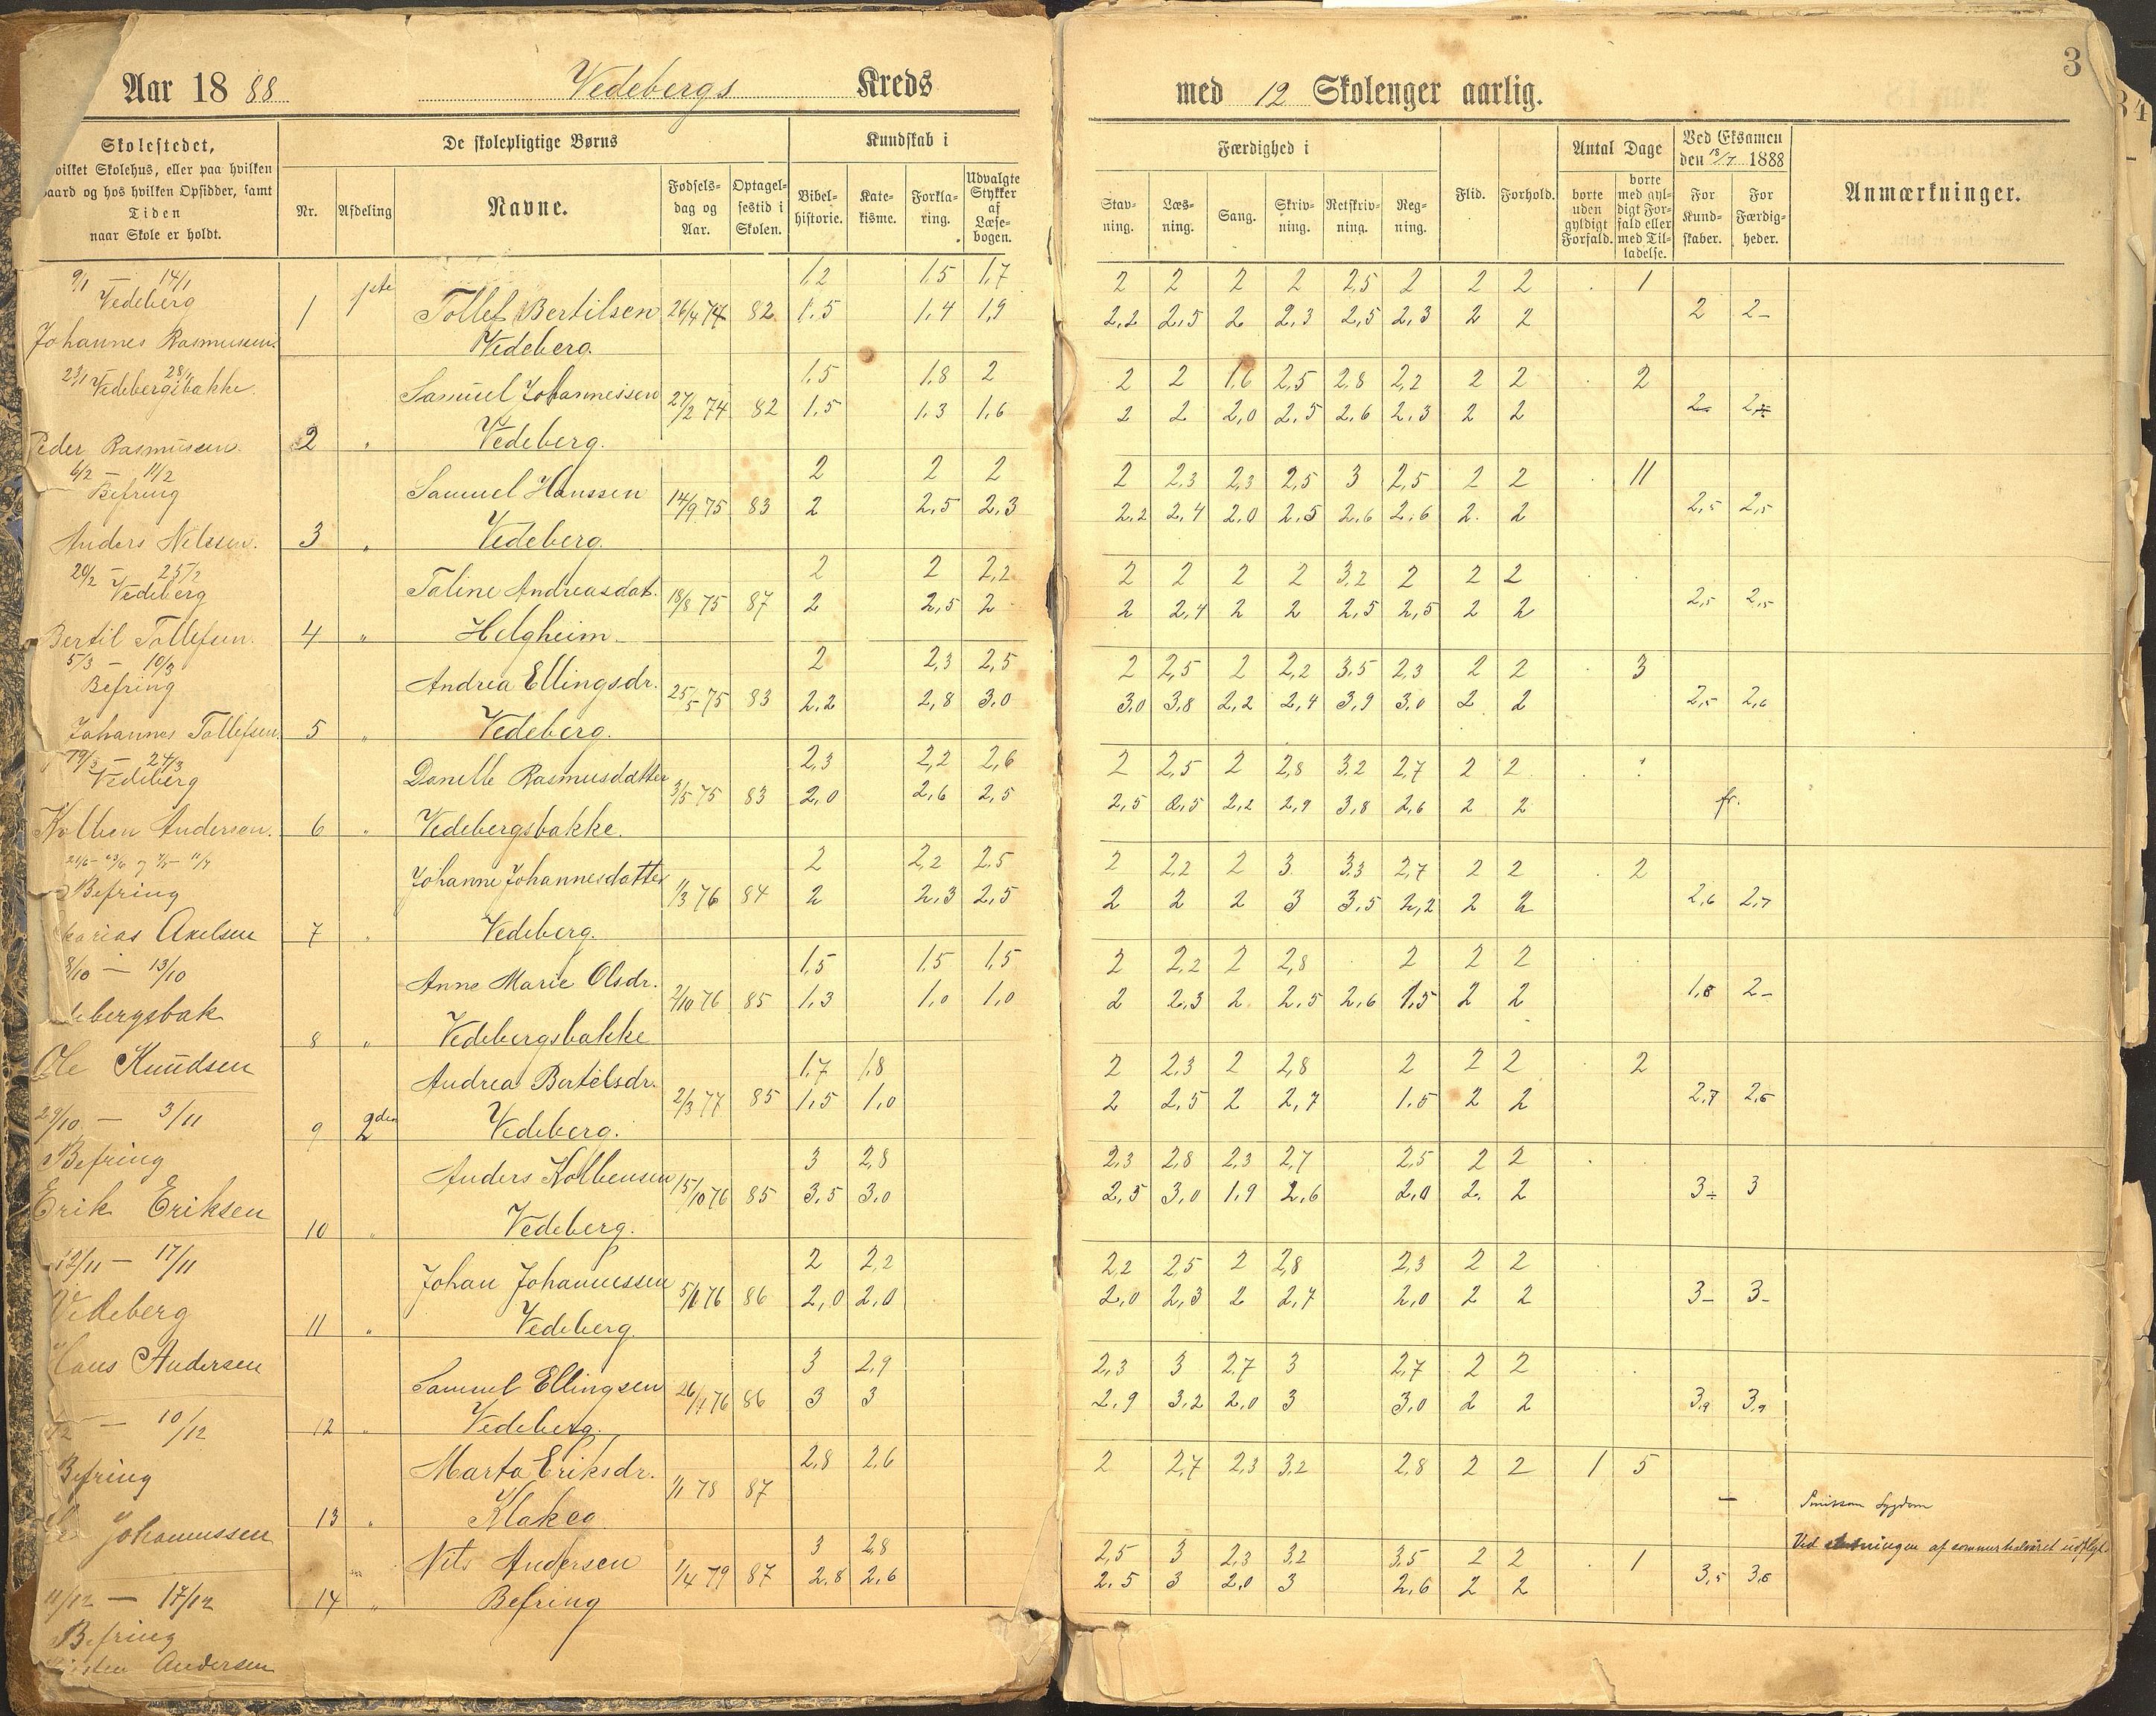 3
Aar 1888 Vedebergs Kreds med 12 Skolenger aarlig.
Skolestedet,
hvilket Skolehus, eller paa hvilken
Gaard og hos hvilken Opsidder, samt
Tiden
naar Skole er holdt.
De skolepligtige Børns
Nr. Afdeling Navne. Fødselsdag og Aar. Optagelsestid i Skolen.
Kundskab i
Bibelhistorie. Katekisme. Forklaring. Udvalgte Stykker af Læsebogen.
Færdighed i
Stavning. Læsning. Sang. Skrivning. Retskrivning. Regning.
Flid. Forhold.
Antal Dage
borte uden gyldigt Forfald. borte med gyldigt Forfald eller med Tilladelse.
Ved Eksamen
den 18/7 1888
For Kundskaber. For Færdigheder.
Anmærkninger.
9/1 — 14/1
Vedeberg
Johannes Rasmussen.
23/1 28/1
Vedebergsbakke.
Peder Rasmussen.
6/2 — 11/2
Befring
Anders Nilssen.
20/2 — 25/2
Vedeberg
Bertil Tollefsen.
5/3 — 10/3
Befring
Johannes Tollefsen.
19/3 — 24/3
Vedeberg
Kolben Andersen.
Befring
Axelsen
8/10 — 13/10
Ole Knudsen
29/10 — 3/11
Befring
Erik Eriksen
12/11 — 17/11
Vedeberg
Hans Andersen
— 10/12
Befring
Johannessen
11/12 — 17/12
Befring
Andersen
1.2 1.5 1.7 2 2 2 2 2,5 2 2 2 . 1
1 1ste Tollef Bertilsen 26/4 74 82 1.5 1.4 1,9 2,2 2,5 2 2,3 2,5 2,3 2 2 2 2-
Vedeberg.
1.5 1.8 2 2 2 1,6 2,5 2,8 2,2 2 2 . 2
Samuel Johannessen 27/2 74 82 1.5 1.3 1,6 2 2 2,0 2,5 2,6 2,3 2 2
2 " Vedeberg.
2 2 2 2 2,3 2,3 2,5 3 2,5 2 2 . 11
Samuel Hanssen 14/9 75 83 2 2,5 2,3 2,2 2,4 2,0 2,5 2,6 2,6 2. 2 2,5 2,5
3 " Vedeberg.
2 2 2,2 2 2 2 2 3,2 2 2 2 . .
Taline Andreasdat. 18/8 75 87 2 2,5 2 2 2,4 2 2 2,5 2,5 2 2 2,5 2,5
4 " Helgheim.
2 2,3 2,5 2 2,5 2 2,2 3,5 2,3 2 2 . 3
Andrea Ellingsdr. 25/5 75 83 2,2 2,8 3,0 3,0 3,8 2,2 2,4 3,9 3,0 2 2 2,5 2,6
5 " Vedeberg.
2,3 2,2 2,6 2 2,5 2 2,8 3,2 2,7 2 2 .
Danille Rasmusdatter 3/5 75 83 2,0 2,6 2,5 2,5 2,5 2,2 2,9 3,8 2,6 2 2 fr.
6 " Vedebergsbakke.
2 2,2 2,5 2 2,2 2 3 3,3 2,7 2 2 . 2
Johanne Johannesdatter 1/3 76 84 2 2,3 2,5 2 2 2 3 3,5 2,2 2 2 2,6 2,7
7 " Vedeberg.
1,5 1,5 1,5 2 2,2 2 2,8 . 2 2 2 . .
Anne Marie Olsdr. 2/10 76 85 1,3 1,0 1,0 2 2,3 2 2,5 2,6 1,5 2 2 2-
8 " Vedebergsbakke
1,7 1,8 2 2,3 2 2,8 2 2 2 2
Andrea Bertelsdr. 2/3 77 85 1,5 1,0 2 2,5 2 2,7 1.5 2 2 2,7
9 2den Vedeberg.
3 2,8 2,3 2,8 2,3 2,7 2,5 2 2 .
Anders Kolbensen 15/10 76 85 3,5 3,0 2,5 3,0 1,9 2,6 2,0 2. 2 3- 3
10 " Vedeberg.
2 2,2 2,2 2,5 2 2,8 2,3 2 2
Johan Johannessen 76 86 2,0 2,0 2,0 2,3 2 2,7 2,0 2 2 3- 3-
11 " Vedeberg.
3 2,9 2,3 3 2,7 3 2,7 2 2 . .
Samuel Ellingsen 76 86 3 3 2,9 3,2 2,0 3 3,0 2 2 3,9 3,9
12 " Vedeberg.
2,8 2,6 2 2,7 2,3 3,2 2,8 2 2 1 5
Marta Eriksdr. 1/1 78 87 —
13 " Klakeg. Smitsom Sygdom
3 2,8 2,5 3 2,3 3,2 3,5 2 2 . 1 Ved slutningen af sommerhalvåret udflyt.
Nils Andersen 1/4 79 87 2,8 2,6 2.5 3 2,0 3 2,6 2 2 3,5
14 " Befring